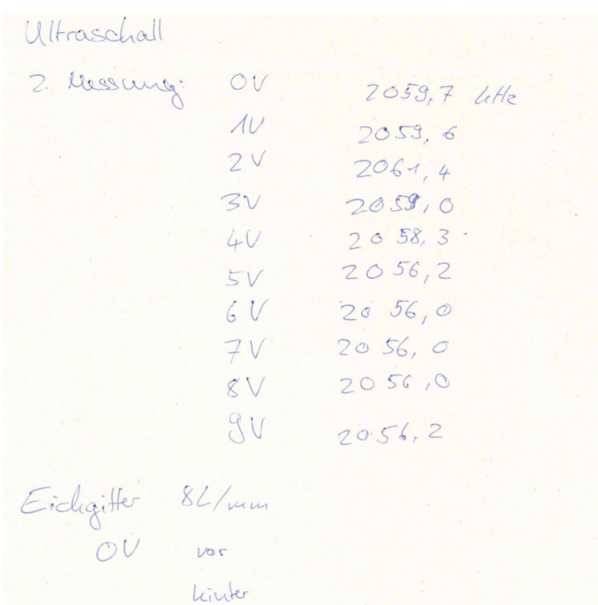 Ultraschall
2. Messung: 0V 2059,7 kHz
1V 2059,6
2V 2061,4
3V 2059,0
4V 2058,3
5V 2056,2
6V 2056,0
7V 2056,0
8V 2056,0
9V 2056,2
Eichgitter 8L/mm
0V vor
hinter